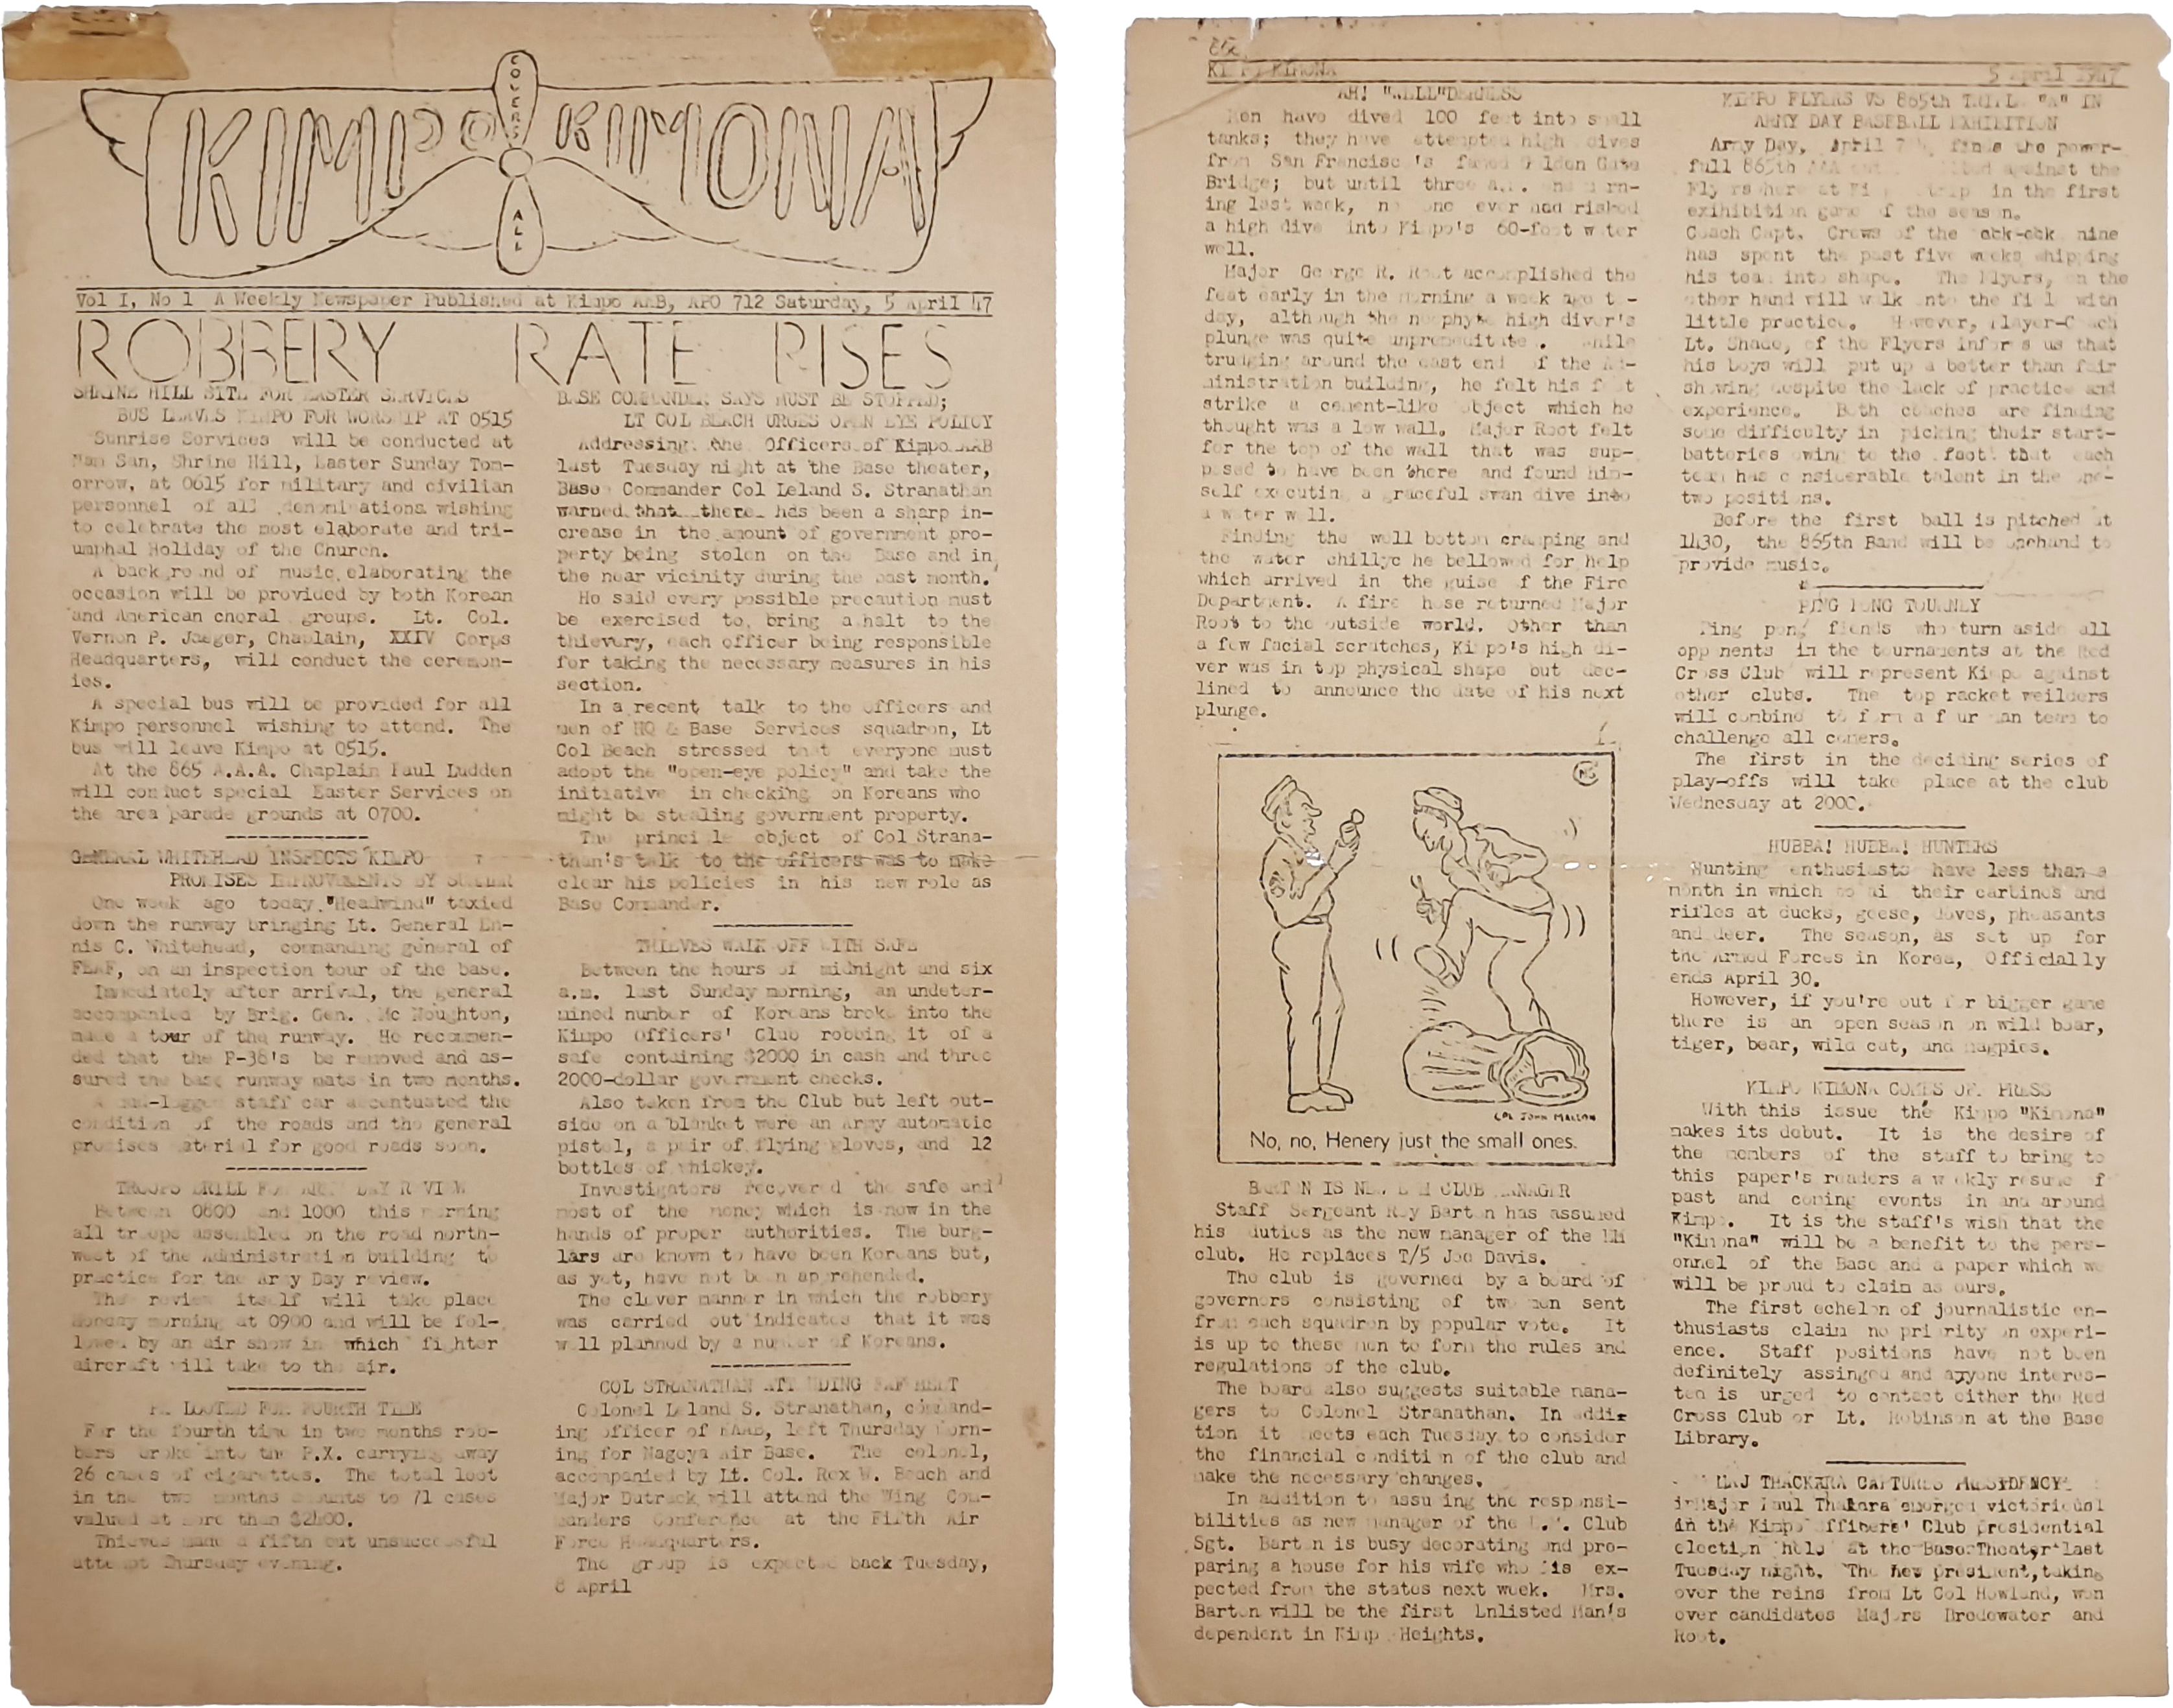 COLKAS
KIMPO KIMONA
ALL
Vol I, No 1 A Weekly Newspaper Published at Kimpo AAB, APO 712 Saturday, 5 April 47
ROBBERY RATE RISES
SHRINE HILL SITE FOR EASTER SERVICES
BUS LEAVES KIMPO FOR WORSHIP AT 0515
Sunrise Services will be conducted at
Nam San, Shrine Hill, Easter Sunday Tom-
orrow, at 0615 for military and civilian
personnel of all denominations wishing
to celebrate the most elaborate and tri-
umphal Holiday of the Church.
A background of music elaborating the
occasion will be provided by both Korean
and American choral groups. Lt. Col.
Vernon P. Jaeger, Chaplain, XXIV Corps
Headquarters, will conduct the ceremon-
ies.
A special bus will be provided for all
Kimpo personnel wishing to attend. The
bus will leave Kimpo at 0515.
At the 865 A.A.A. Chaplain Paul Ludden
will conduct special Easter Services on
the area parade grounds at 0700.
GENERAL WHITEHEAD INSPECTS KIMPO
PROMISES IMPROVEMENTS BY SUMMER
One week ago today "Headwind" taxied
down the runway bringing Lt. General En-
nis C. Whitehead, commanding general of
FEAF, on an inspection tour of the base.
Immediately after arrival, the general
accompanied by Brig. Gen. Mc Noughton,
made a tour of the runway. He recommen-
ded that the P-38's be removed and as-
sured the base runway mats in two months.
A staff car accentuated the
condition of the roads and the general
promises material for good roads soon.
TROOPS DRILL FOR ARMY DAY REVIEW
Between 0800 and 1000 this morning
all troops assembled on the road north-
west of the Administration building to
practice for the Army Day review.
The review itself will take place
Monday morning at 0900 and will be fol-
lowed by an air show in which fighter
aircraft will take to the air.
PX LOOTED FOR FOURTH TIME
For the fourth time in two months rob-
bers broke into the P.X. carrying away
26 cases of cigarettes. The total loot
in the two months amounts to 71 cases
valued at more than $2400.
Thieves made a fifth but unsuccessful
attempt Thursday evening.
BASE COMMANDER SAYS MUST BE STOPPED;
LT COL BEACH URGES OPEN EYE POLICY
Addressing the Officers of Kimpo AAB
last Tuesday night at the Base theater,
Base Commander Col Leland S. Stranathan
warned that there has been a sharp in-
crease in the amount of government pro-
perty being stolen on the Base and in
the near vicinity during the past month.
He said every possible precaution must
be exercised to bring a halt to the
thievery, each officer being responsible
for taking the necessary measures in his
section.
In a recent talk to the officers and
men of HQ & Base Services squadron, Lt
Col Beach stressed that everyone must
adopt the "open-eye policy" and take the
initiative in checking on Koreans who
might be stealing government property.
The principle object of Col Strana-
than's talk to the officers was to make
clear his policies in his new role as
Base Commander.
THIEVES WALK OFF WITH SAFE
Between the hours of midnight and six
a.m. last Sunday morning, an undeter-
mined number of Koreans broke into the
Kimpo Officers' Club robbing it of a
safe containing $2000 in cash and three
2000-dollar government checks.
Also taken from the Club but left out-
side on a blanket were an Army automatic
pistol, a pair of flying gloves, and 12
bottles of whiskey.
Investigators recovered the safe and
most of the money which is now in the
hands of proper authorities. The burg-
lars are known to have been Koreans but,
as yet, have not been apprehended.
The clever manner in which the robbery
was carried out indicates that it was
well planned by a number of Koreans.
COL STRANATHAN ATTENDING FAF MEET
Colonel Leland S. Stranathan, command-
ing officer of KAAB, left Thursday morn-
ing for Nagoya Air Base. The colonel,
accompanied by Lt. Col. Rex W. Beach and
Major Dutrack will attend the Wing Com-
manders Conference at the Fifth Air
Force Headquarters.
The group is expected back Tuesday,
8 April
KIMPO KIMONA 5 April 1947
AH! "WELL"DERNESS
Men have dived 100 feet into small
tanks; they have attempted high dives
from San Francisco's famed Golden Gate
Bridge; but until three a.m. one morn-
ing last week, no one ever had risked
a high dive into Kimpo's 60-foot water
well.
Major George R. Root accomplished the
feat early in the morning a week ago to-
day, although the neophyte high diver's
plunge was quite unpremeditated. While
trudging around the east end of the Ad-
ministration building, he felt his foot
strike a cement-like object which he
thought was a low wall. Major Root felt
for the top of the wall that was sup-
posed to have been there and found him-
self executing a graceful swan dive into
a water well.
Finding the well bottom cramping and
the water chillyc he bellowed for help
which arrived in the guise of the Fire
Department. A fire hose returned Major
Root to the outside world. Other than
a few facial scratches, Kimpo's high di-
ver was in top physical shape but dec-
lined to announce the date of his next
plunge.
COL JOHN MALLON
No, no, Henery just the small ones.
BARTON IS NEW E M CLUB MANAGER
Staff Sergeant Roy Barton has assumed
his duties as the new manager of the EM
club. He replaces T/5 Joe Davis.
The club is governed by a board of
governors consisting of two men sent
from each squadron by popular vote. It
is up to these men to form the rules and
regulations of the club.
The board also suggests suitable mana-
gers to Colonel Stranathan. In addi-
tion it meets each Tuesday to consider
the financial condition of the club and
make the necessary changes.
In addition to assuming the responsi-
bilities as new manager of the E.M. Club
Sgt. Barton is busy decorating and pre-
paring a house for his wife who is ex-
pected from the states next week. Mrs.
Barton will be the first Enlisted Man's
dependent in Kimpo Heights.
KIMPO FLYERS VS 865th TRIPLE "A" IN
ARMY DAY BASEBALL EXHIBITION
Army Day, April 7th, finds the power-
full 865th AAA pitted against the
Flyers here at Kimpo in the first
exihibition game of the season.
Coach Capt. Crews of the ack-ack nine
has spent the past five weeks whipping
his team into shape. The Flyers, on the
other hand will walk onto the field with
little practice. However, Player-Coach
Lt. Shade, of the Flyers informs us that
his boys will put up a better than fair
showing despite the lack of practice and
experience. Both coaches are finding
some difficulty in picking their start-
batteries owing to the fact that each
team has considerable talent in the one-
two positions.
Before the first ball is pitched at
1430, the 865th Band will be onehand to
provide music.
PING PONG TOURNEY
Ping pong fiends who turn aside all
opponents in the tournaments at the Red
Cross Club will represent Kimpo against
other clubs. The top racket weilders
will combine to form a four man team to
challenge all comers.
The first in the deciding series of
play-offs will take place at the club
Wednesday at 2000.
HUBBA! HUBBA! HUNTERS
Hunting enthusiasts have less than a
month in which to aim their carbines and
rifles at ducks, geese, doves, pheasants
and deer. The season, as set up for
the Armed Forces in Korea, Officially
ends April 30.
However, if you're out for bigger game
there is an open season on wild boar,
tiger, bear, wild cat, and magpies.
KIMPO KIMONA COMES OFF PRESS
With this issue the Kimpo "Kimona"
makes its debut. It is the desire of
the members of the staff to bring to
this paper's readers a weekly resume of
past and coming events in and around
Kimpo. It is the staff's wish that the
"Kimona" will be a benefit to the pers-
onnel of the Base and a paper which we
will be proud to claim as ours.
The first echelon of journalistic en-
thusiasts claim no priority on experi-
ence. Staff positions have not been
definitely assinged and anyone interes-
ted is urged to contact either the Red
Cross Club or Lt. Robinson at the Base
Library.
MAJ THACKARA CAPTURES PRESIDENCY
Major Paul Thakara emerged victorious
in the Kimpo Officers' Club presidential
election held at the Base Theater last
Tuesday night. The new president, taking
over the reins from Lt Col Howland, won
over candidates Majors Dredewater and
Root.